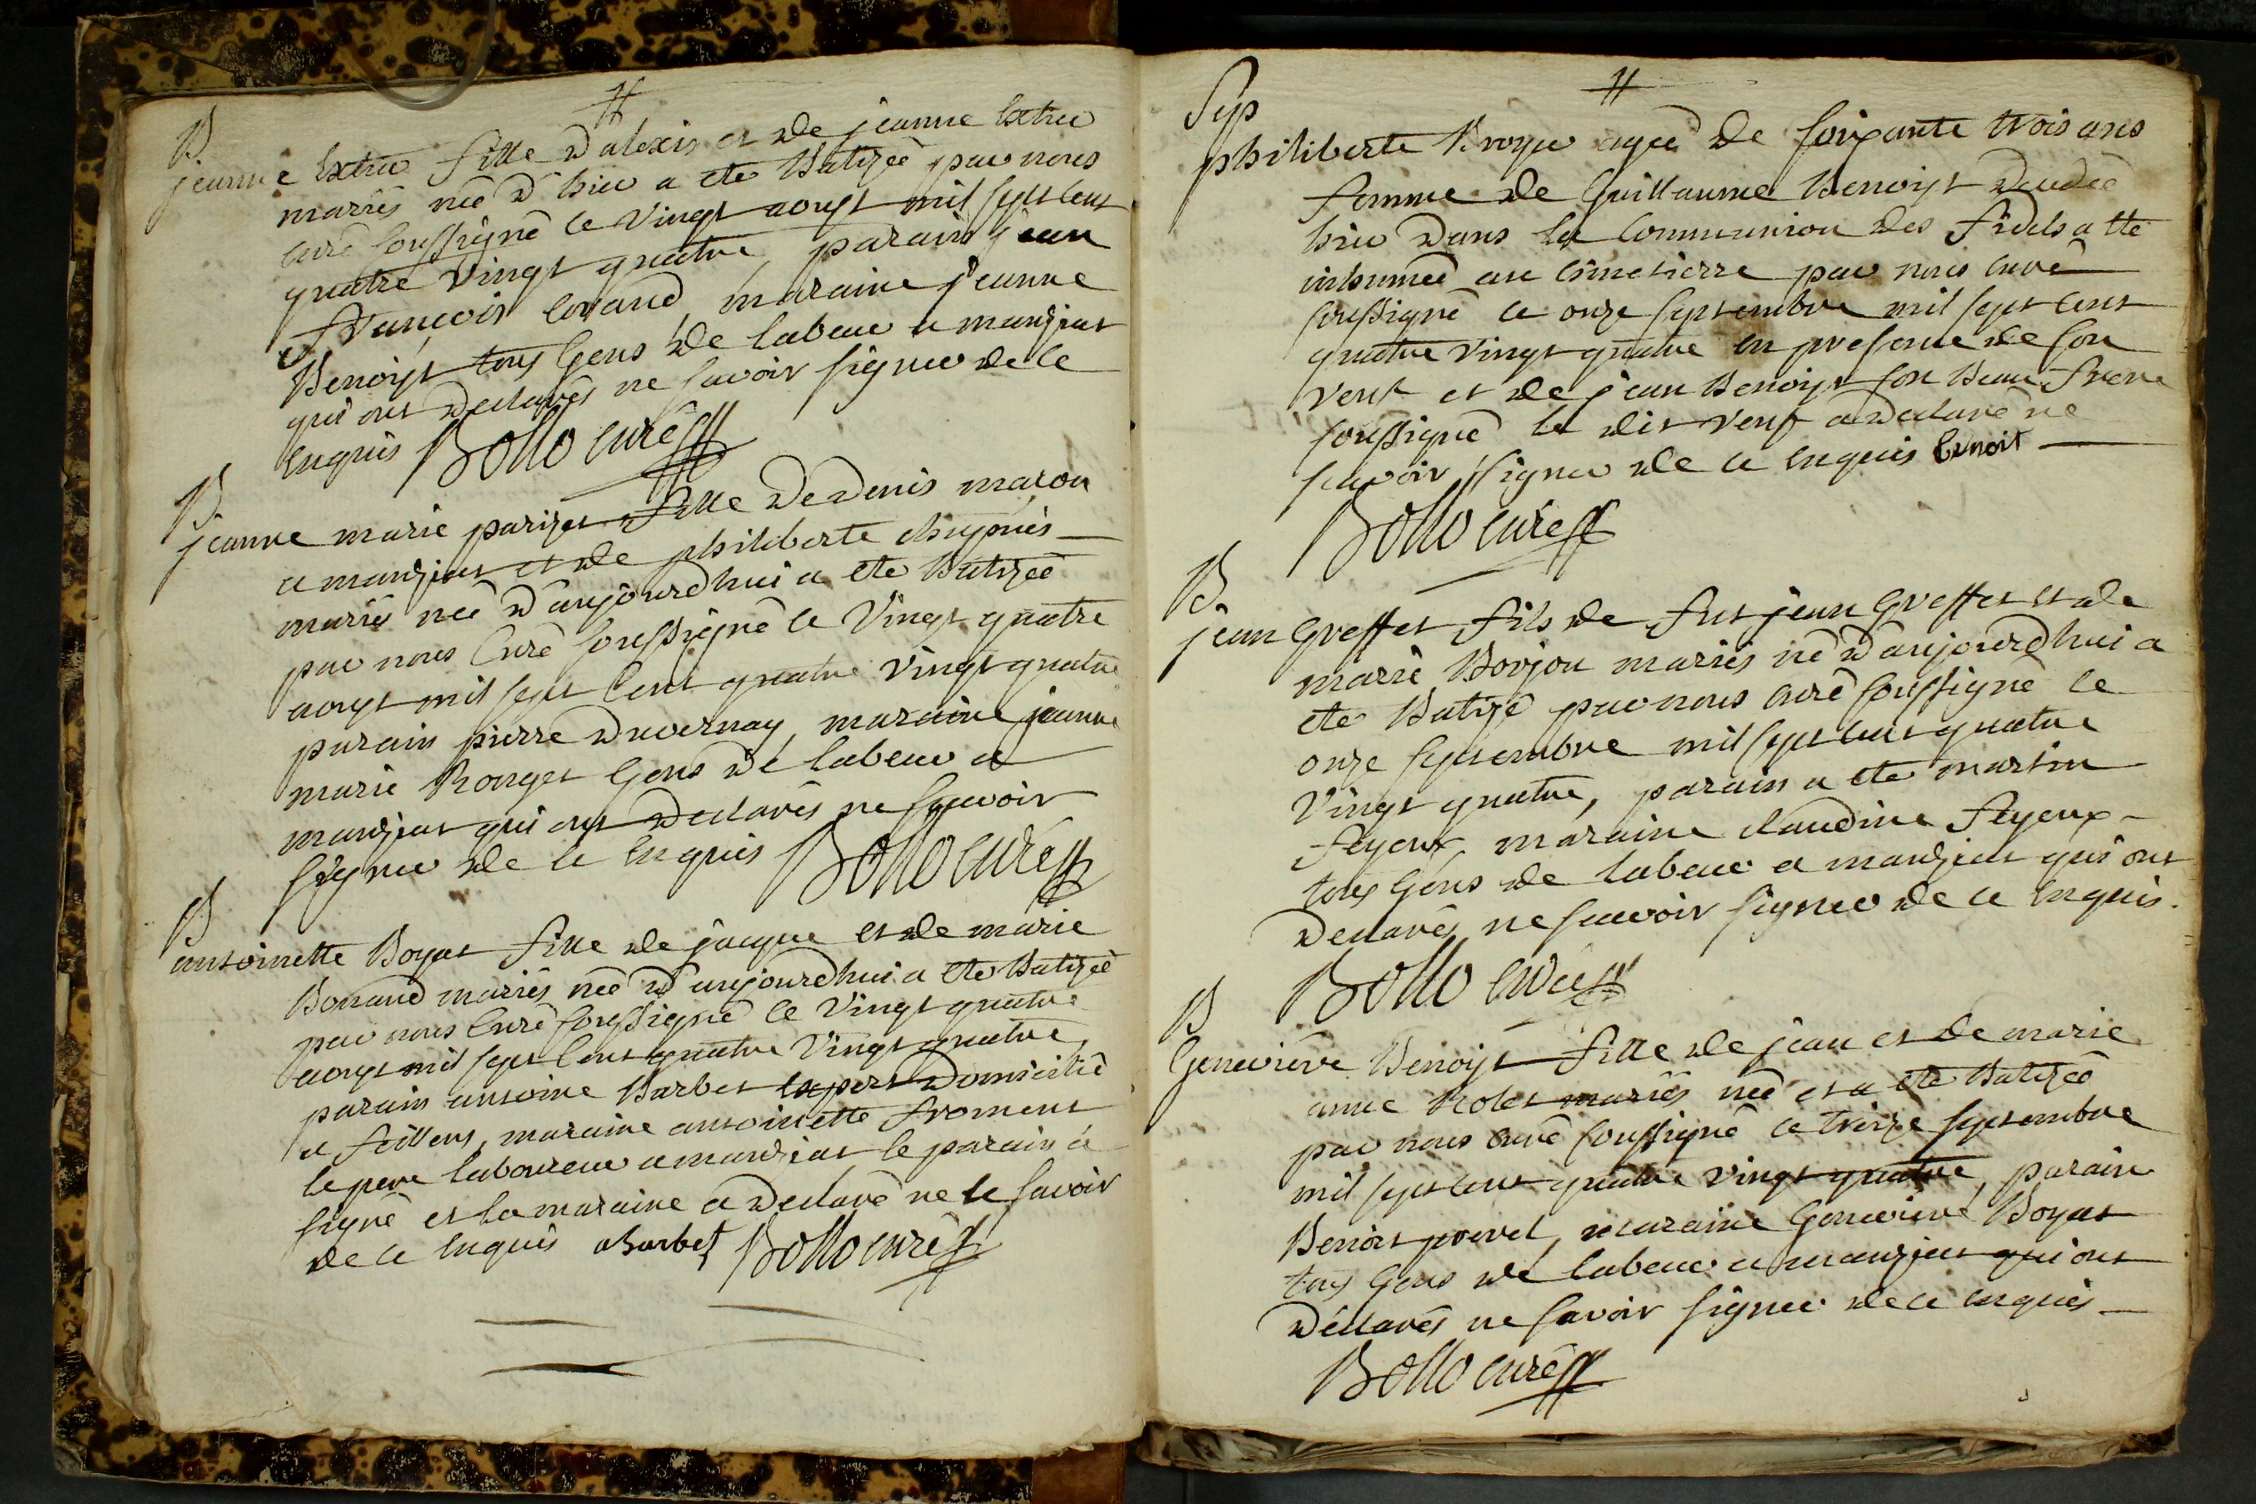 B
jeanne Extre fille d'alexis et de jeanne Extre
mariés née d'hier a ete Batizeé par nous
curé soussigné le vingt aoust mil sept cent
quatre vingt quatre, parain jean
françois, maraine jeanne
Benoist tous gens de labeur a manziat
qui ont declarés ne savoir signer de ce
enquis Bollo curé
B
jeanne marie parizet fille de denis maçon
a manziat et de philiberte
mariés neé d'aujourdhui a ete Batizeé
par nous Curé soussigné le vingt quatre
aoust mil sept Cent quatre vingt quatre
parain pierre Duvernay, maraine jeanne
marie Ronget gens de labeur a
manziat qui ont declarés ne sçavoir
signer de ce enquis Bollo curé
B
antoinette Boyat fille de jacque et de marie
Bonand mariés neé d'aujourdhui a ete Batizeé
par nous Curé soussigné le vingt quatre
aoust mil sept Cent quatre vingt quatre,
parain antoine Barbet expert domicilié
a feillens, maraine antoinette froment
le pere laboureur a manziat le parain a
signé et la maraine a declaré ne le savoir
de ce enquis abarbet Bollo curé
Sep
philiberte Broyer ageé de soixante trois ans
femme de Guillaume Benoist decedeé
hier dans la Communion des fidels a ete
inhumeé au cimetierre par nous curé
soussigné le onze septembre mil sept cent
quatre vingt quatre en presence de son
veuf et de jean Benoist son Beau frere
soussigné le dit veuf a declaré ne
sçavoir signer de ce enquis benoit
Bollo curé
B
jean Greffet fils de fut jean Greffet et de
marie Borjon mariés né d'aujourdhui a
ete Batizé par nous curé soussigné le
onze septembre mil sept cent quatre
vingt quatre, parain a ete martin
feyeux maraine claudine feyeux
tous gens de labeur a manziat qui ont
declarés ne sçavoir signer de ce enquis.
Bollo curé
B
Geneviéve Benoist fille de jean et de marie
anne Rolet mariés neé et a ete Batizeé
par nous curé soussigné le treize septembre
mil sept cent quatre vingt quatre, parain
Benoit, maraine Genevieve Boyat
tous gens de labeur a manziat qui ont
déclarés ne savoir signer de ce enquis
Bollo curé